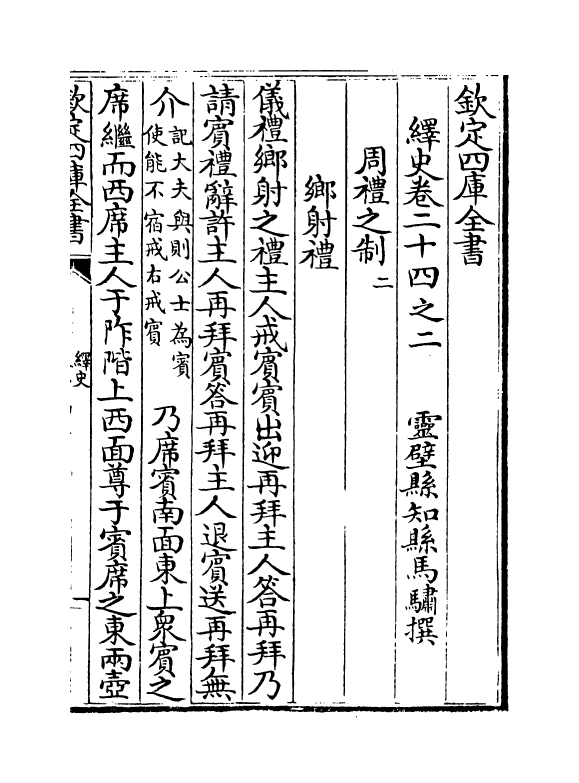 欽定四庫全書
繹史卷二十四之二　靈壁縣知縣馬驌撰
周禮之制二
鄉射禮
儀禮鄉射之禮主人戒賓賓出迎再拜主人答再拜乃
請賓禮辭許主人再拜賓答再拜主人退賓送再拜無
介記大夫與則公士為賓使能不宿戒右戒賓　乃席賓南面東上衆賓之
席繼而西席主人于阼階上西面尊于賓席之東兩壺
欽定四庫全書
繹史